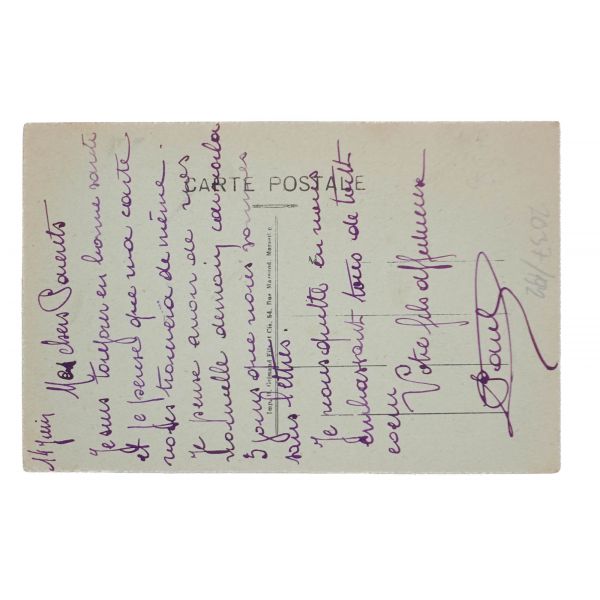 14 juin Mes chers Parents
Je suis toujour en bonne santé
et je pense que ma carte
vous trouvera de même.
Je pense avoir de vos
nouvelle demain car voila
5 jours que nous sommes
sans lettres.
Je vous quitte en vous
embrassant tous de tout
coeur
Votre fils affectueux
CARTE POSTALE
Cie, 54, Rue Marseille